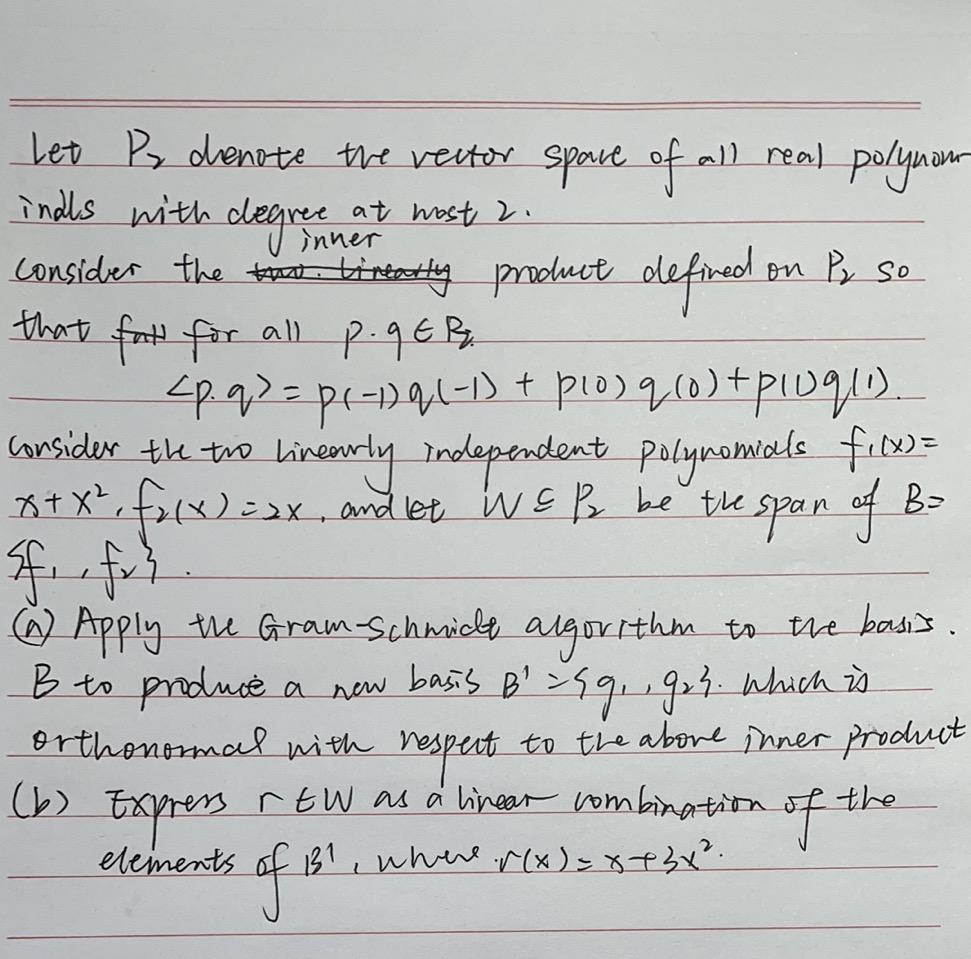 Let P₂ denote the vector space of all real polynom
inals with degree at most 2.
inner
Consider the product defined on P₂ so
that for all p.q ∈ P₂.
<p.q> = p(-1)q(-1) + p(0)q(0)+p(1)q(1).
consider the two linearly independent polynomials f₁(x)=
x+x², f₂(x)=2x, and let W ⊆ P₂ be the span of B=
{f₁, f₂}.
(a) Apply the Gram-Schmidt algorithm to the basis.
B to produce a new basis B' = {g₁, g₂}. which is
orthonormal with respect to the above inner product
(b) Express r∈W as a linear combination of the
elements of B', where r(x)=x+3x².